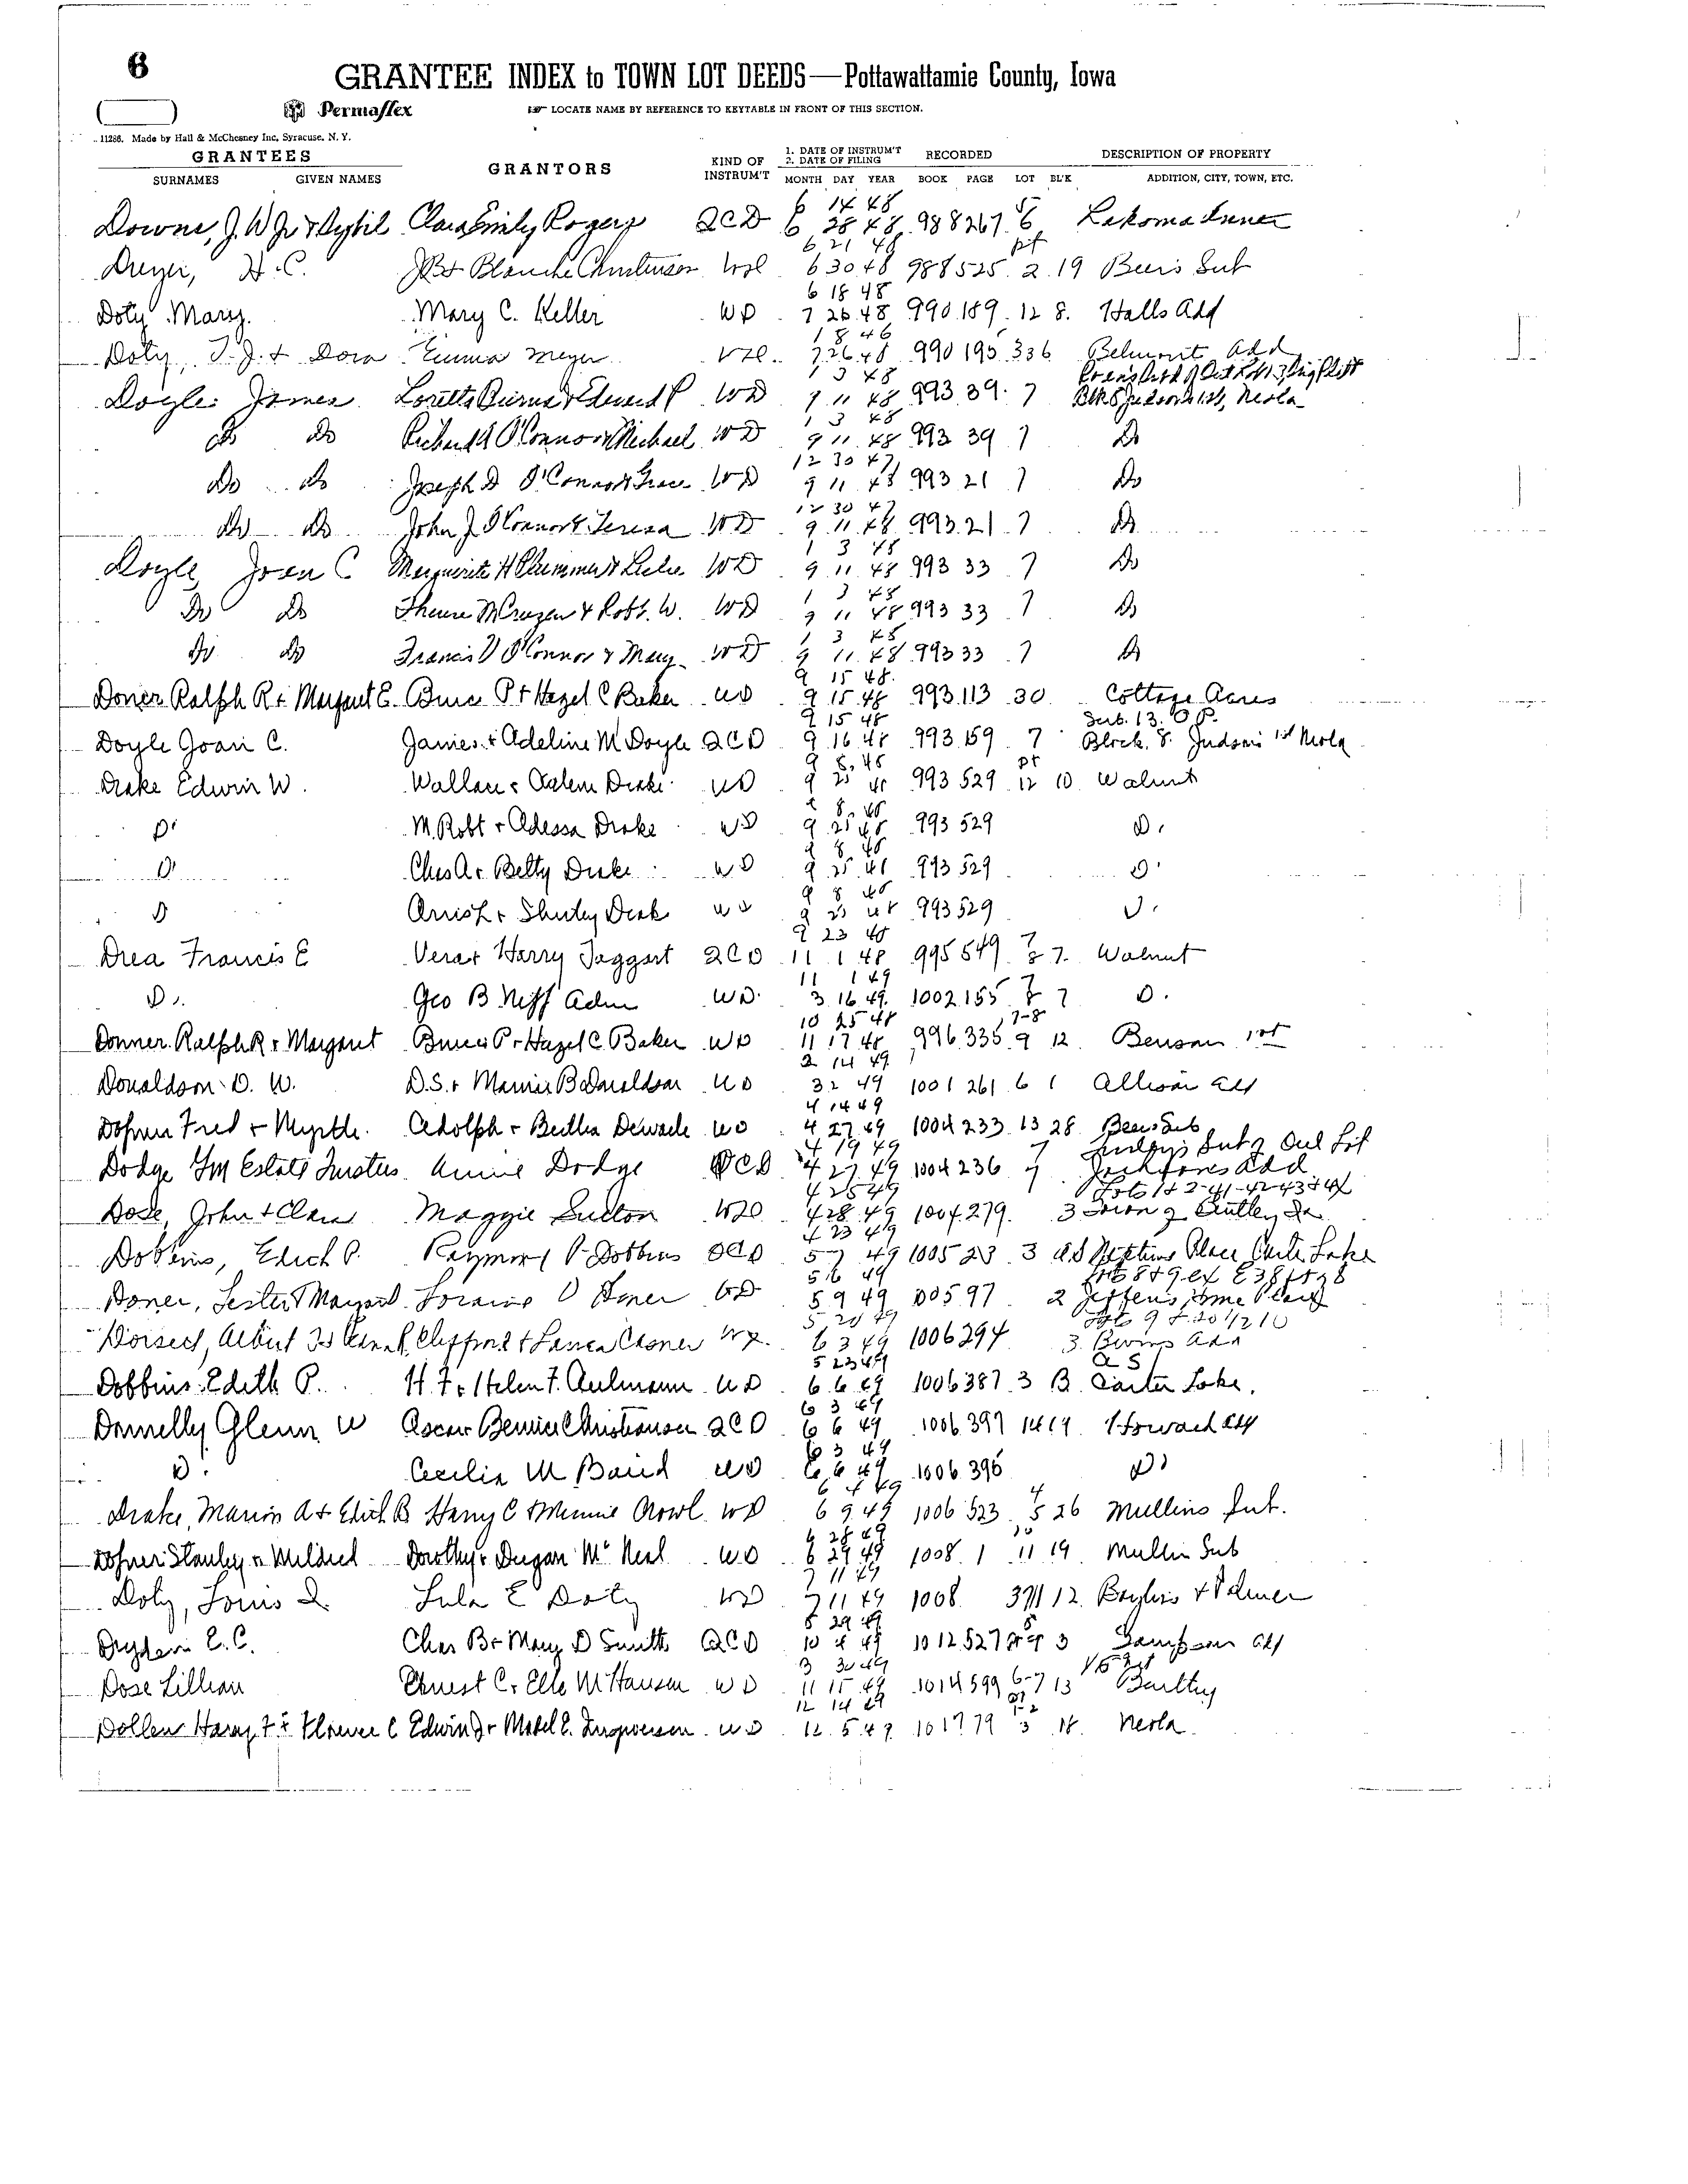 6
GRANTEE INDEX to TOWN LOT DEEDS—Pottawattamie County, Iowa
Permaflex LOCATE NAME BY REFERENCE TO KEYTABLE IN FRONT OF THIS SECTION.
11286. Made by Hall & McChesney Inc. Syracuse, N. Y.
GRANTEES GRANTORS KIND OF INSTRUM'T 1. DATE OF INSTRUM'T 2. DATE OF FILING RECORDED DESCRIPTION OF PROPERTY
SURNAMES GIVEN NAMES MONTH DAY YEAR BOOK PAGE LOT BL'K ADDITION, CITY, TOWN, ETC.
6 14 48 5
Downs, J. W Jr & Sybil Clara Emily Rogers QCD 6 28 48 988 267 6
6 21 48 pt
H. C. J B & Blanche Christensen WD 6 30 48 988 525 2 19 Beers Sub
6 18 48
Doty Mary. Mary C. Keller WD 7 26 48 990 189 12 8. Halls Add
1 8 46
Doty, T. J. & Dora Emma Meyer 7 26 48 990 195 336 Belmont Add
1 3 48
Doyle James Loretta Burns & Edward P WD 9 11 48 993 39 7 Blk 8 Judsons 1st, Neola
1 3 48
Do Do Richard A O'Connor & Michael WD 9 11 48 993 39 7 Do
12 30 47
Do Do Joseph D O'Connor & Grace WD 9 11 48 993 21 7 Do
12 30 47
Do Do John J O'Connor & Teresa WD 9 11 48 993 21 7 Do
1 3 48
Doyle, Joan C Marguerite H Plummer & Leslie WD 9 11 48 993 33 7 Do
1 3 48
Do Do & Robt. W. WD 9 11 48 993 33 7 Do
1 3 48
Do Do Francis V O'Connor & Mary WD 9 11 48 993 33 7 Do
9 15 48
Doner Ralph R & Margaret E. Bruce P & Hazel C Baker WD 9 15 48 993 113 30 Cottage Acres
9 15 48 Sub. 13. O P.
Doyle Joan C. James & Adeline M Doyle QCD 9 16 48 993 159 7 Block 8. Judsons 1st Neola
9 8 48 pt
Drake Edwin W. Wallace & Drake WD 9 25 48 993 529 12 10 Walnut
9 8 48
D. M. Robt & Odessa Drake WD 9 25 48 993 529 D.
9 8 48
D. Chas A & Betty Drake WD 9 25 48 993 529 D.
9 8 48
D & Shirley Drake WD 9 25 48 993 529 D.
9 23 48 7
Drea Francis E Vera & Harry Taggart QCD 11 1 48 995 549 8 7 Walnut
11 1 49 7
D. Geo B Neff Adm WD. 3 16 49 1002 155 8 7 D.
10 25 48 7-8
Donner Ralph R & Margaret Bruce P & Hazel C. Baker WD 11 17 48 996 335 9 12 Benson 1st
2 14 49
Donaldson D. W. D. S. & Mamie B Donaldson WD 3 2 49 1001 261 6 1 Allison Add
4 14 49
Fred & Myrtle Adolph & Bertha WD 4 27 49 1004 233 13 28 Beers Sub
4 19 49 7 Sub of Out Lot
Dodge Estate Trustees Annie Dodge QCD 4 27 49 1004 236 7 Jacksons Add
4 25 49 Lots 1 & 2-41-42-43 & 44
Dose, John & Clara Maggie Sutton WD 4 28 49 1004 279 3 Town of
4 23 49
Dobbins, Edith P. Raymond P Dobbins QCD 5 7 49 1005 23 3 Neptune Place Carter Lake
5 6 49 Lots 8 & 9 ex E 38 ft of 8
Doner, Lester & Margaret Loraine D Doner WD 5 9 49 1005 97 2 Home Place
5 20 49
Dorsed, Albert Clifford & WD 6 3 49 1006 294 3 Add
5 23 49 a s
Dobbins Edith P. H. F. & Helen F. WD 6 6 49 1006 387 3 B Carter Lake.
6 3 49
Donnelly Glenn W Oscar & Bernice Christiansen QCD 6 6 49 1006 397 14 19 Howard Add
6 3 49
D. Cecilia M Baird WD 6 6 49 1006 396 D.
6 4 49 4
Drake, Marion A & Edith B Harry C & Minnie Crowl WD 6 9 49 1006 523 5 26 Mullins Sub.
6 28 49 10
Stanley & Mildred Dorothy & Dugan McNeal WD 6 29 49 1008 1 11 19 Mullin Sub
7 11 49
Doty, Louis D Lula E Doty WD 7 11 49 1008 Bayliss & Palmer
8 29 49
Dryden E. C. Chas B & Mary D Smith QCD 10 4 49 1012 527 3 Sampson Add
3 30 49
Dose Lillian Ernest C. & Ella M Hansen WD 11 15 49 1014 599 6-7 13
12 14 49 1-2
Dollen Harry F & Florence C Edwin J & Mabel E. WD 12 5 49 1017 79 3 18 Neola